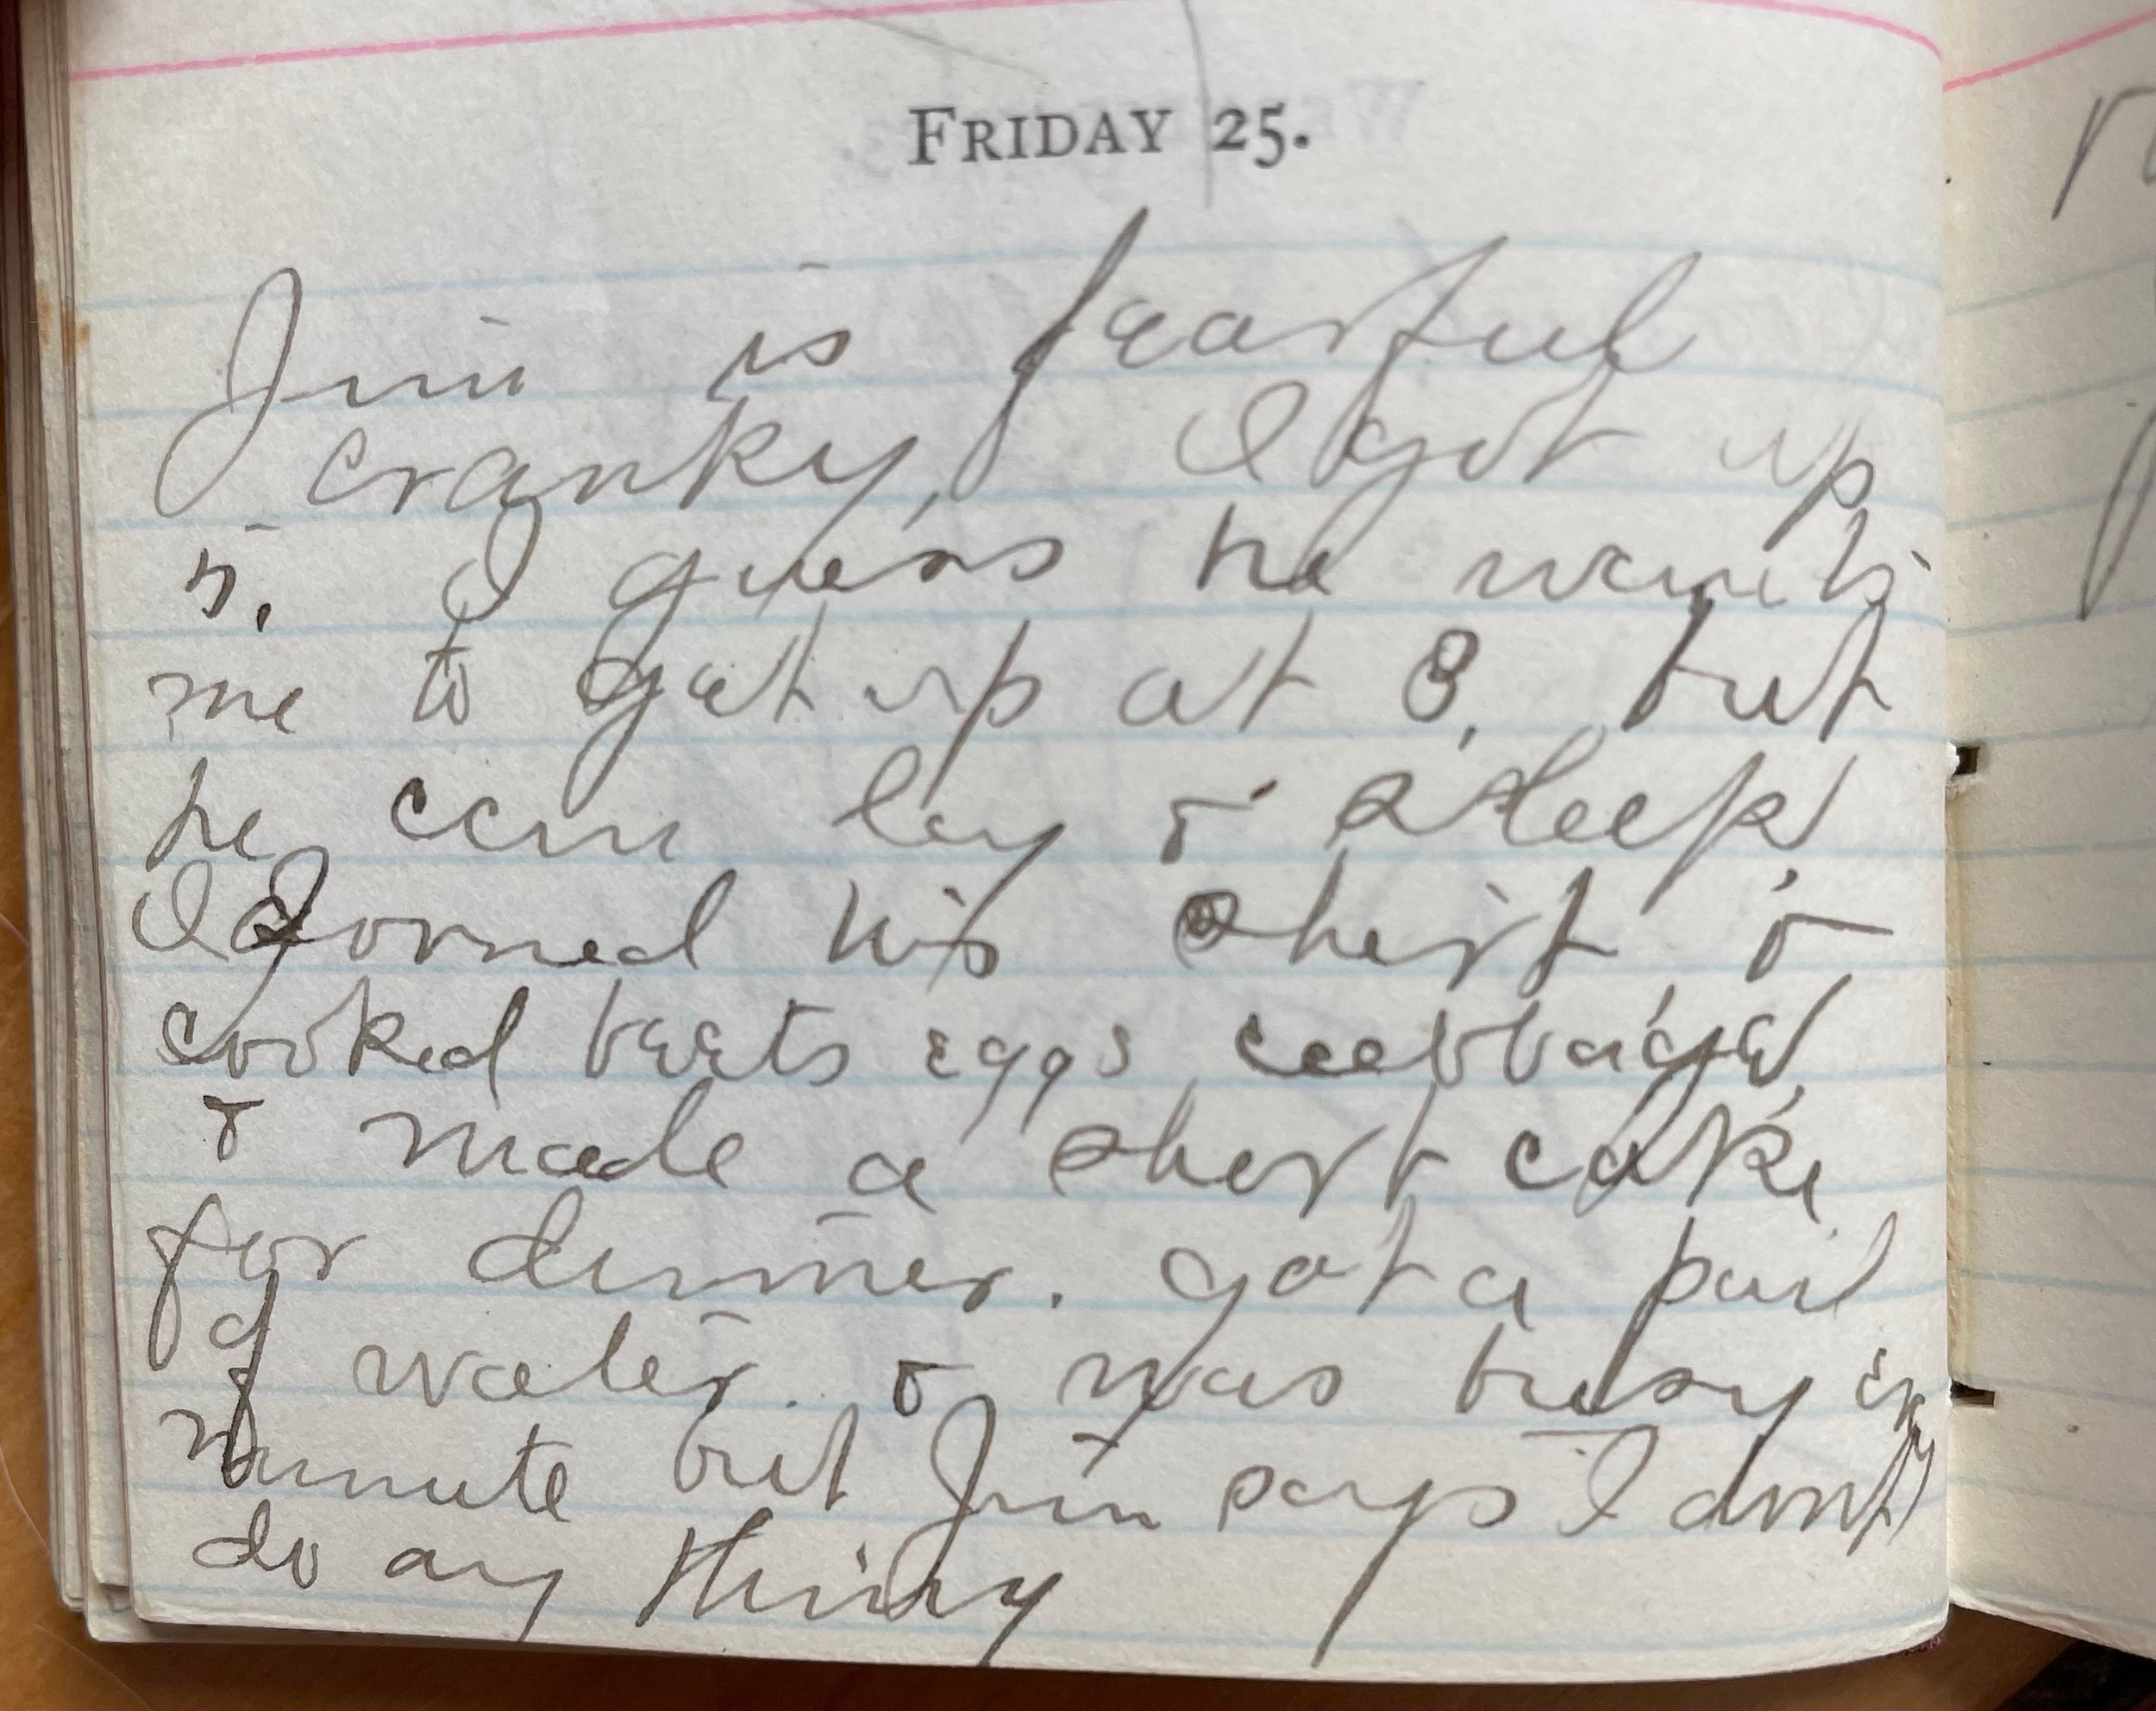 FRIDAY 25.
Jim is fearful
cranky, I got up
5. I guess he wants
me to get up at 3, but
he can lay & sleep,
I dorned his shirt, &
cooked beets eggs cabbage,
& made a short cake
for dinner. got a pail
of water. & was busy ev
minute but Jim says I dont
do any thing